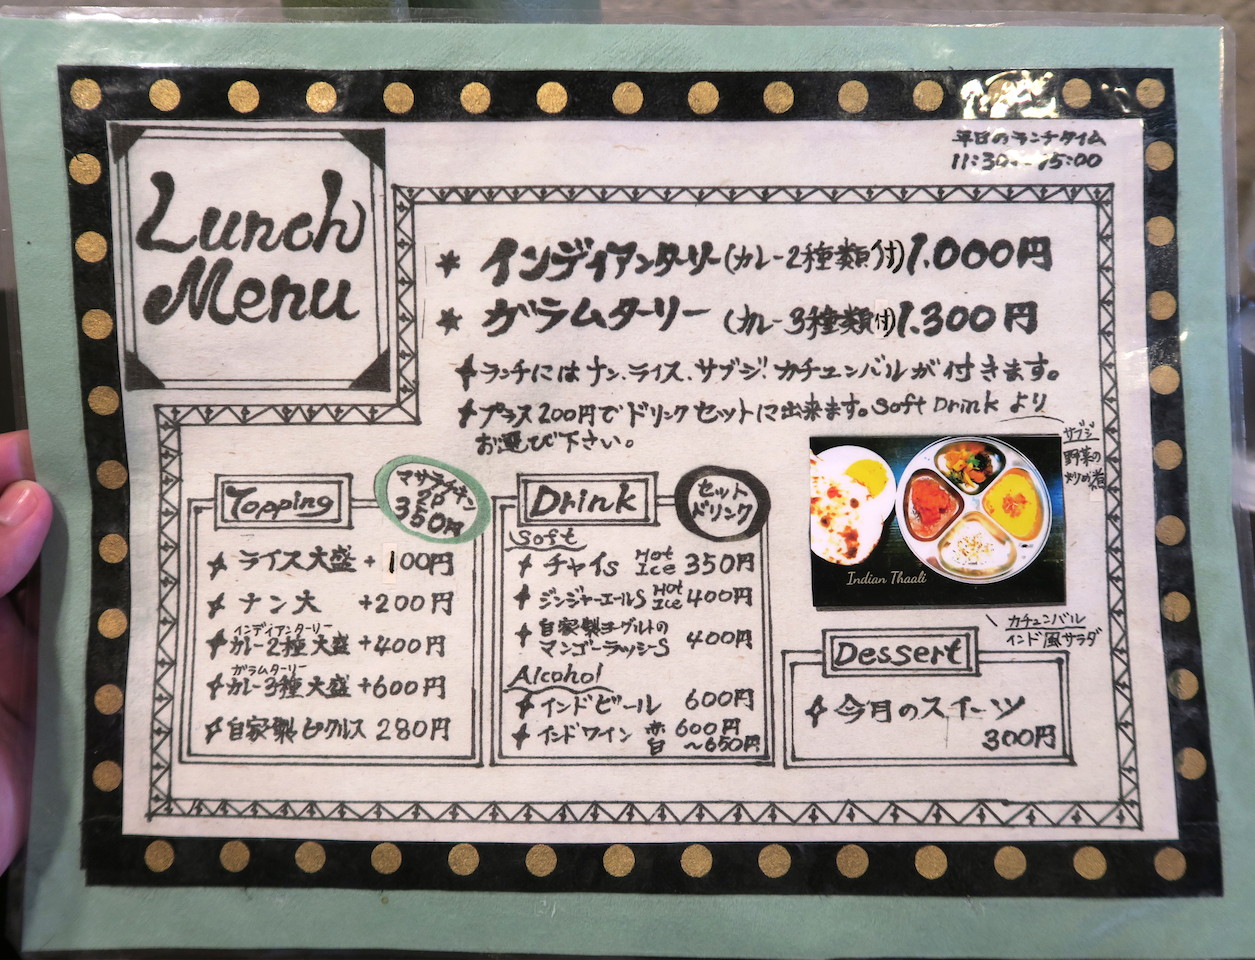 平日のランチタイム
11:30〜15:00
Lunch
Menu
★ インディアンターリー(カレー2種類付)1.000円
★ ガラムターリー (カレー3種類付)1.300円
ランチにはナン、ライス、サブジ、カチュンバルが付きます。
プラス200円でドリンクセットに出来ます。Soft Drinkより
お選び下さい。
サブジ
野菜の
炒め煮
Indian Thaali
カチュンバル
インド風サラダ
Topping
マサラチキン
2P
350円
ライス大盛 +100円
ナン大 +200円
インディアンターリー
カレー2種大盛 +400円
ガラムターリー
カレー3種大盛 +600円
自家製ピクルス 280円
Drink
セット
ドリンク
Soft
チャイS Hot Ice 350円
ジンジャーエールS Hot Ice 400円
自家製ヨーグルトの
マンゴーラッシーS 400円
Alcohol
インドビール 600円
インドワイン 赤 600円
白 〜650円
Dessert
今月のスイーツ
300円